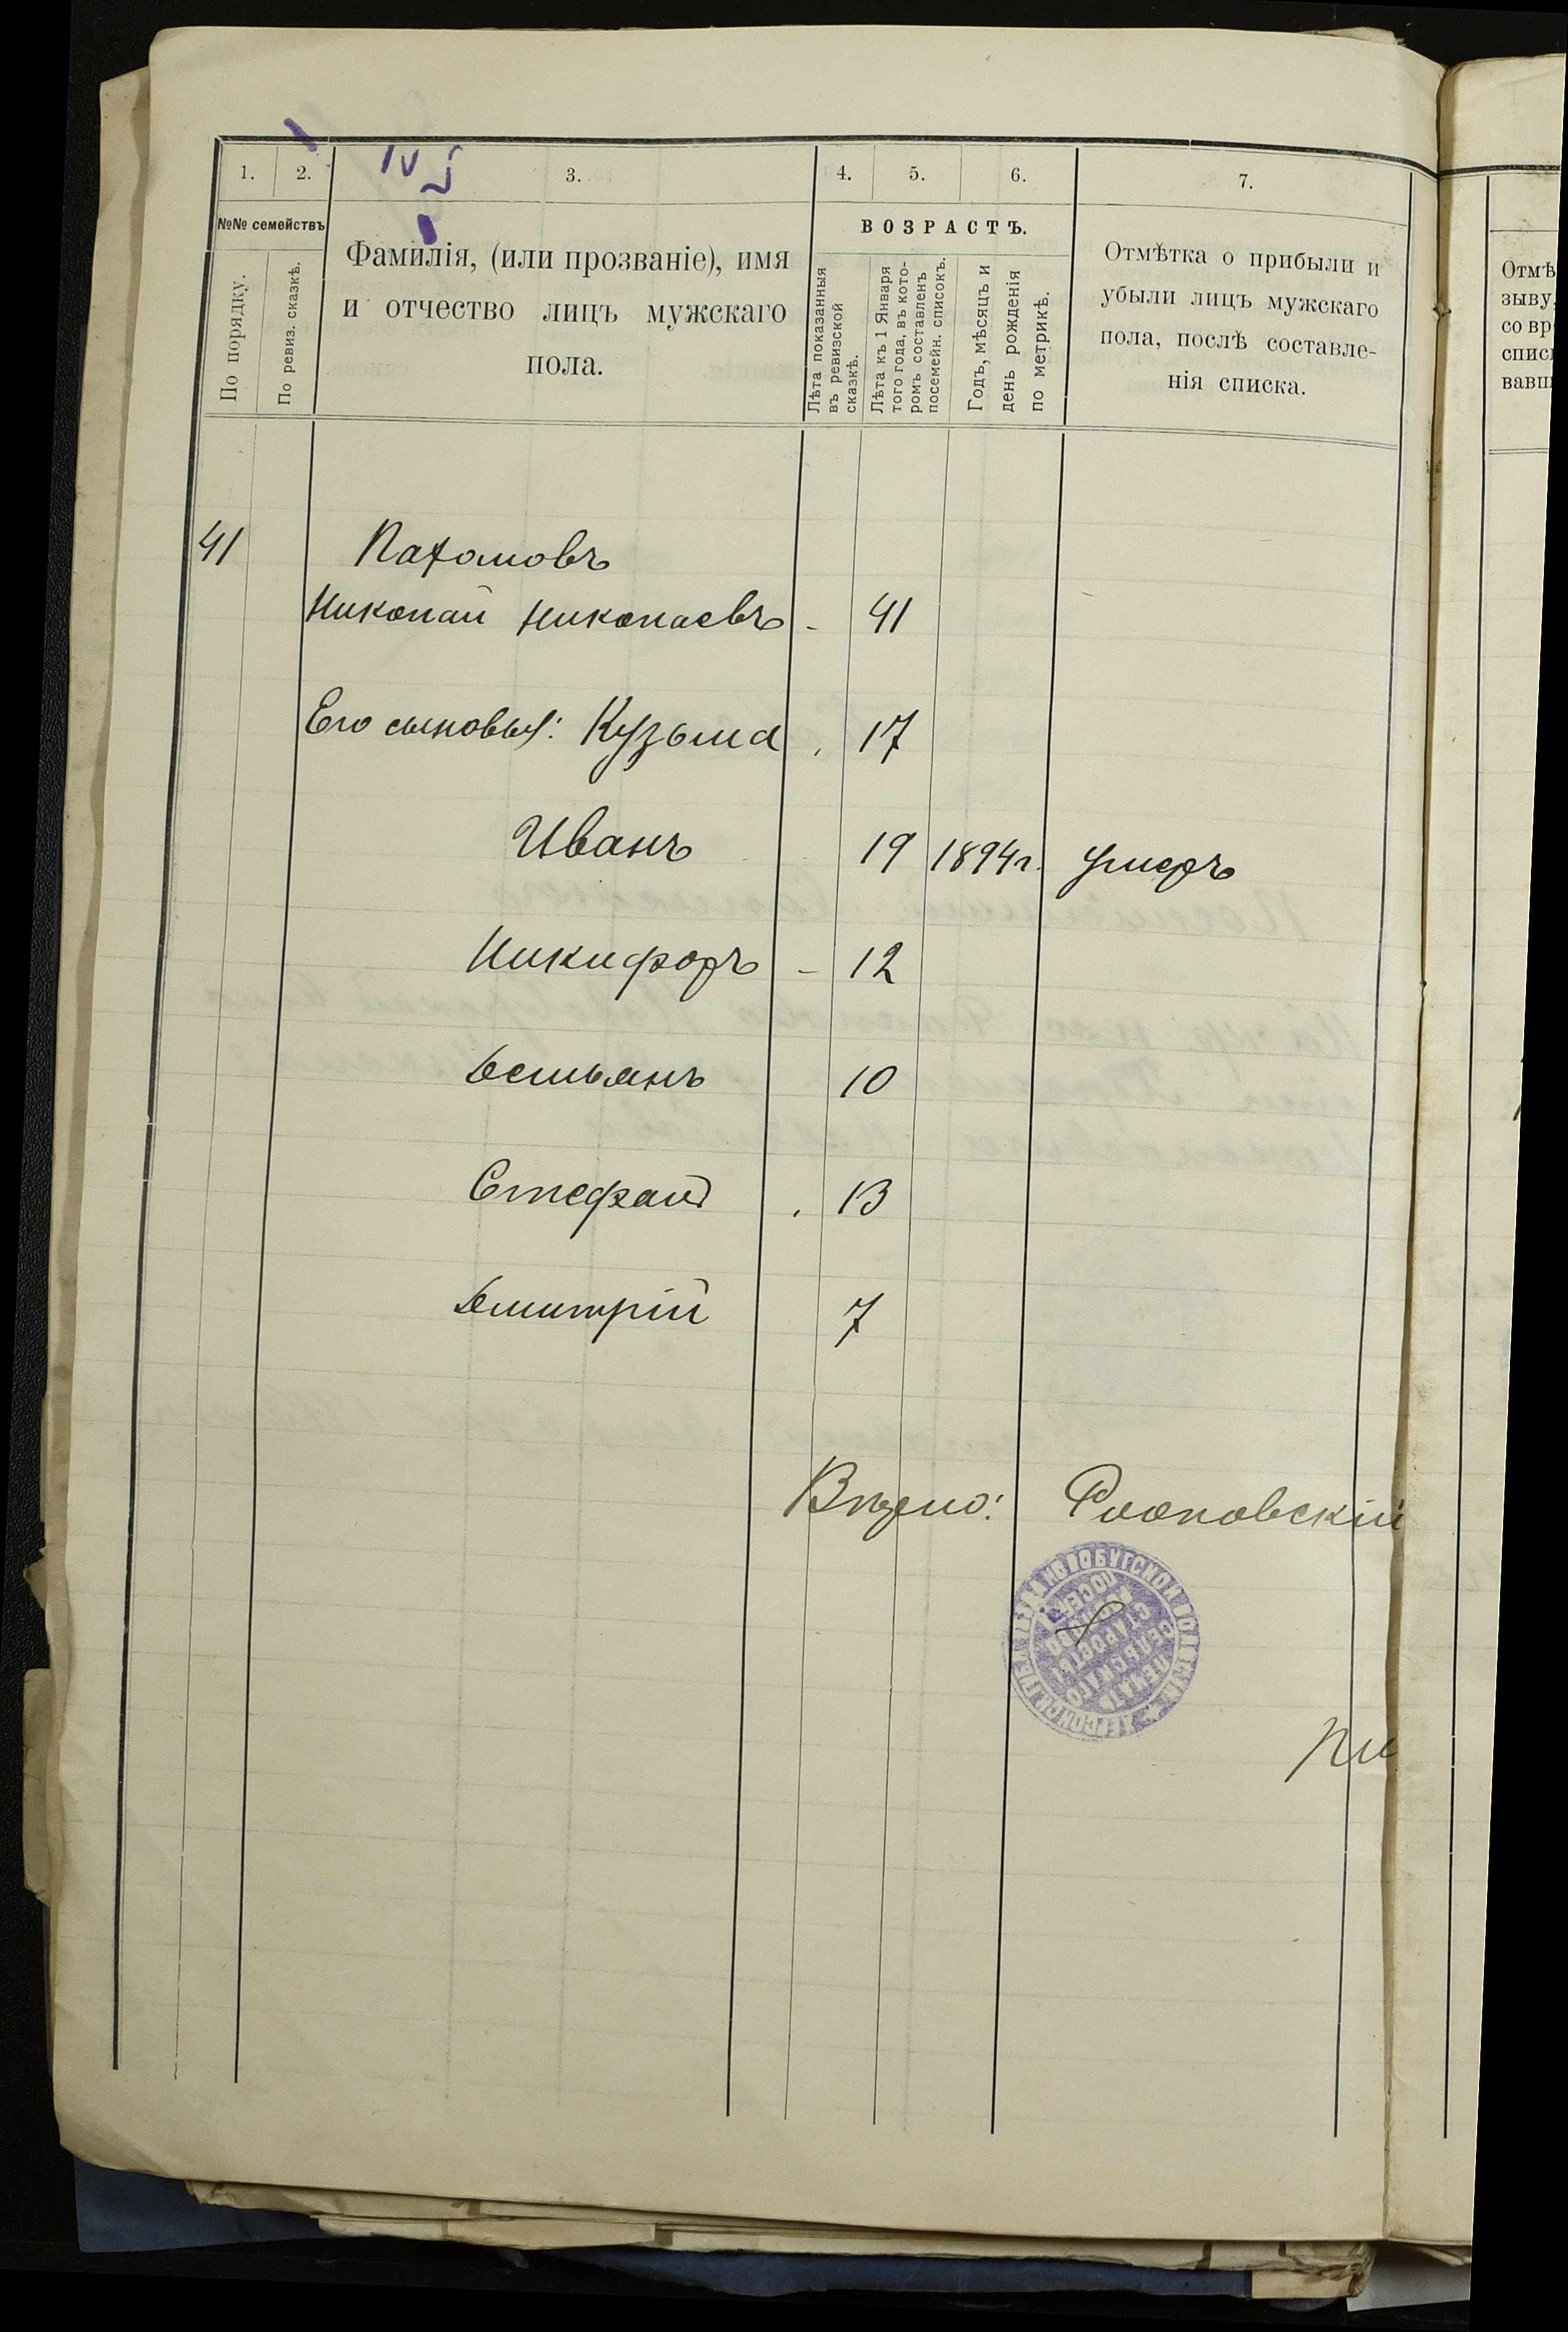 1. 2. 3. 4. 5. 6. 7.
№№ семействъ
По порядку.
По ревиз. сказкѣ.
Фамилія, (или прозваніе), имя
и отчество лицъ мужскаго
пола.
ВОЗРАСТЪ.
Лѣта показанныя
въ ревизской
сказкѣ.
Лѣта къ 1 Января
того года, въ кото-
ромъ составленъ
посемейн. списокъ.
Годъ, мѣсяцъ и
день рожденія
по метрикѣ.
Отмѣтка о прибыли и
убыли лицъ мужскаго
пола, послѣ составле-
нія списка.
Отмѣ
зыву,
со вр
списк
вавш
41 Пахомовъ
Николай Николаевъ - 41
Его сыновья: Кузьма 17
Иванъ 19 1894 г. умеръ
Никифоръ - 12
Демьянъ 10
Стефанъ 13
Дмитрій 7
ХЕРСОНСК. ГУБ. НОВОБУГСКОЙ ВОЛОСТИ
ПЕЧАТЬ
СЕЛЬСКАГО
СТАРОСТЫ